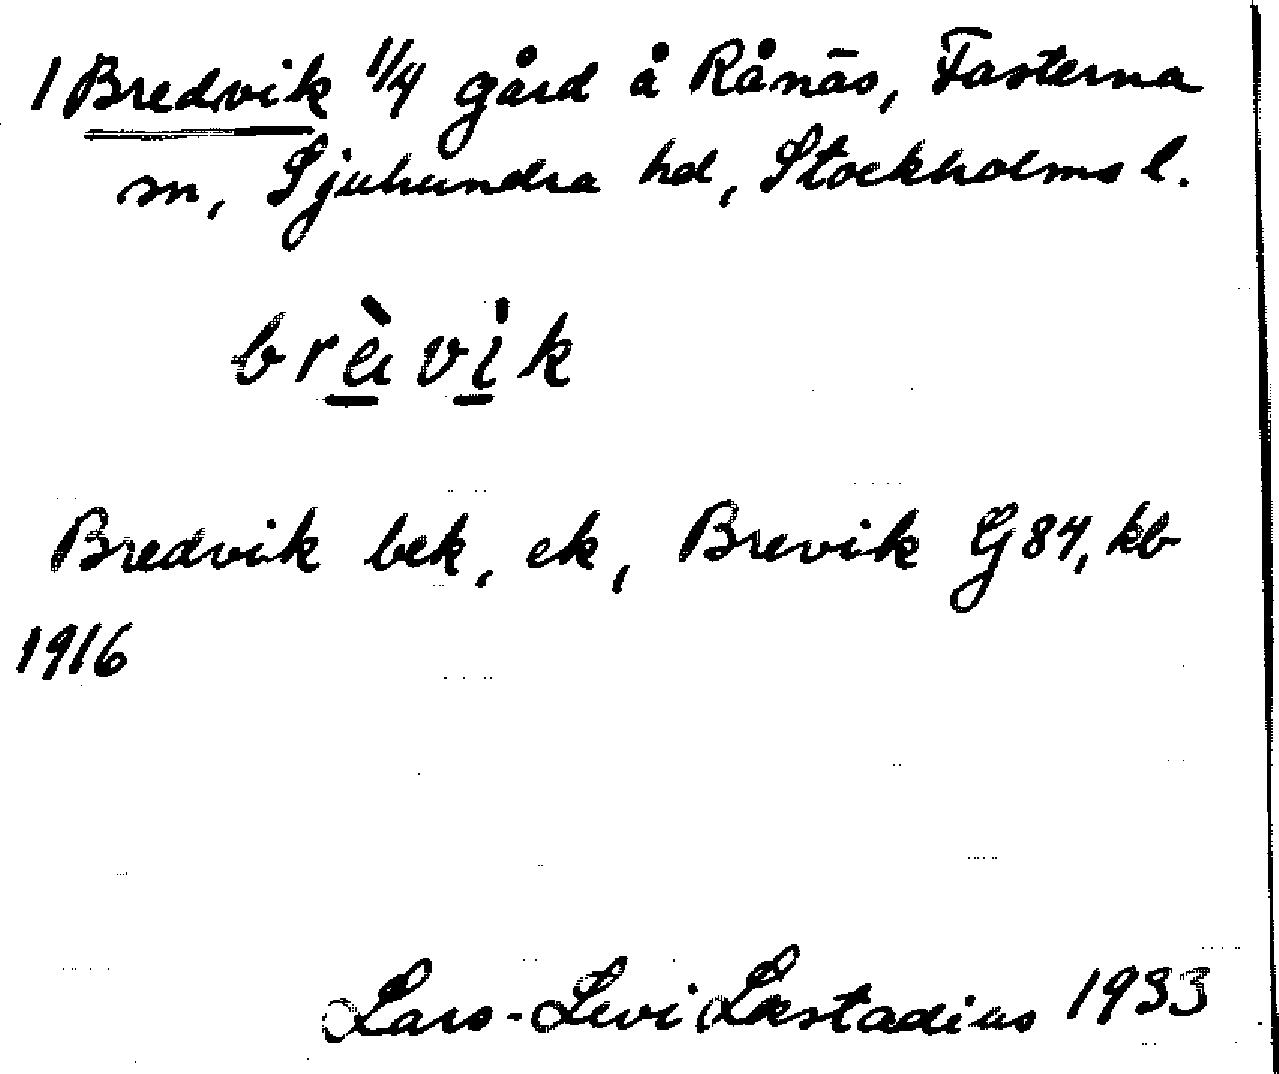 1 Bredvik 1/4 gård å Rånäs, Fasterna
sn, Sjuhundra hd, Stockholms l.
bræ̀vik
Bredvik bek, ek, Brevik G 84, kb
1916
Lars-Levi Læstadius 1933